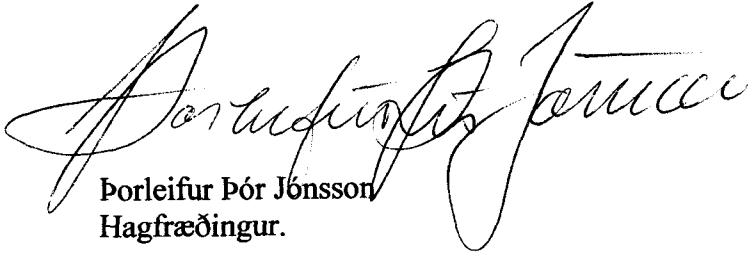 Þorleifur Þór Jónsson
Þorleifur Þór Jónsson
Hagfræðingur.